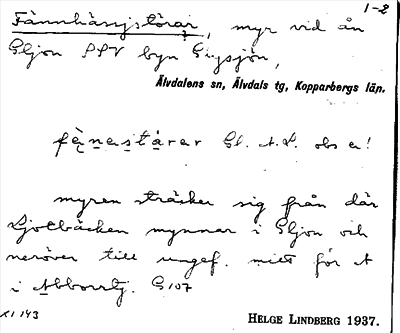 1-2
Fännhäsjstörar, myr vid ån
Eljon SSV byn Gigsjön,
Älvdalens sn, Älvdals tg, Kopparbergs län.
myren sträcker sig från där
Ljotbäcken mynnar i Eljon och
neröver till ungef. mitt för A
i Abborrtj. G 107
XI 143
HELGE LINDBERG 1937.